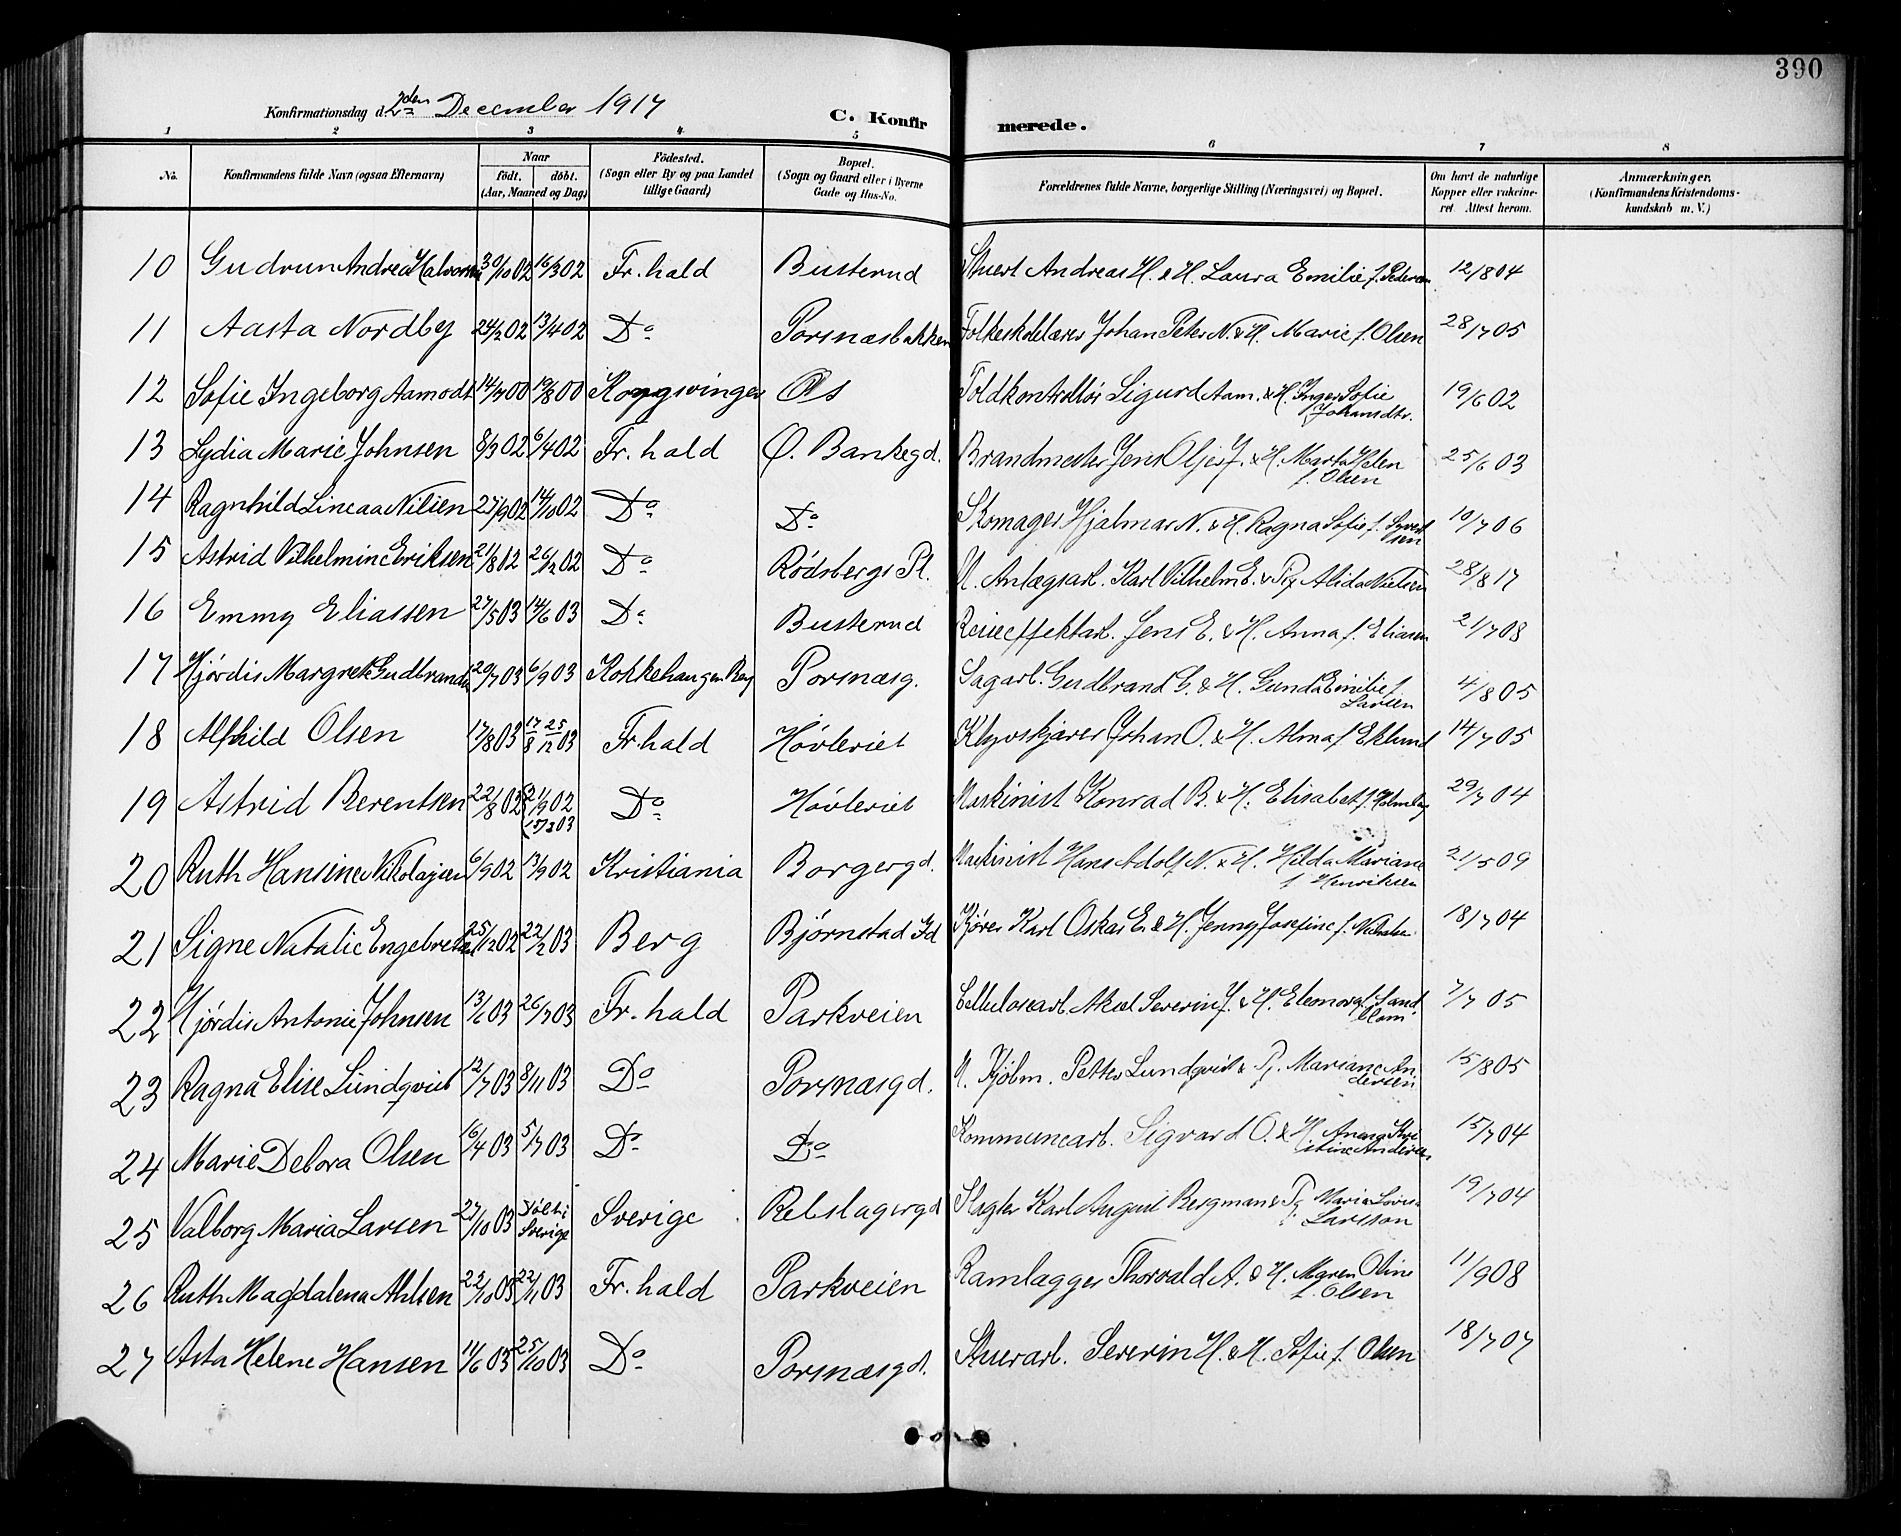 390
Konfirmationsdag d. 2den December 1917
C. Konfirmerede.
1 2 3 4 5 6 7 8
No. Konfirmandens fulde Navn (ogsaa Efternavn) Naar født. døbt. (Aar, Maaned og Dag) Födested. (Sogn eller By og paa Landet tillige Gaard) Bopæl. (Sogn og Gaard eller i Byerne Gade og Hus-No. Forældrenes fulde Navne, borgerlige Stilling (Næringsvei) og Bopæl. Om havt de naturlige Kopper eller vakcineret. Attest herom. Anmærkninger. (Konfirmandens Kristendomskundskab m. V.)
10 Gudrun Andrea 30/10 02 16/3 02 Fr.hald Busterud Stuert Andreas H. & H. Laura Emilie f. Pedersen 12/8 04
11 Aasta Nordby 24/2 02 13/4 02 Do Porsnæsbakken Folkeskolelærer Johan Peter N. & H. Marie f. Olsen 28/7 05
12 Sofie Ingeborg Aamodt 14/7 00 19/8 00 Kongsvinger Os Toldkontrollør Sigurd Aam. & H. Inger Sofie f. Johansdtr. 19/6 02
13 Lydia Marie Johnsen 8/3 02 6/4 02 Fr.hald Ø. Bankegd. Brandmester Jens J. & H. Marta Helen f. Olsen 25/6 03
14 Ragnhild Lineaa Nilsen 27/9 02 14/10 02 Do Do Skomager Hjalmar N. & H. Ragna Sofie f. 10/7 06
15 Astrid Vilhelmine Eriksen 21/8 02 26/12 02 Do Rödsbergs Pl. U. Anlægsarb. Karl Vilhelm E. & Pg. Alida Nielsen 28/8 17
16 Emmy Eliassen 27/5 03 14/6 03 Do Busterud Reiseeffektarb. Jens E. & H. Anna f. Eliasen 21/7 08
17 Hjørdis Margrete Gudbrandsen 20/7 03 6/9 03 Kokkehaugen Berg Porsnæsg. Sagarb. Gudbrand G. & H. Gunda Emilie f. Larsen 4/8 05
18 Alfhild Olsen 17/8 03 17/8 25/12 03 Fr.hald Høvleriet Klyvskjærer Johan O. & H. Alma f. Eklund 14/7 05
19 Astrid Berentsen 22/8 02 21/9 02 (15/3 03 Do Høvleriet Maskinist Konrad B. & H. Elisabet f. Holmberg 29/7 04
20 Ruth Hansine Nikolajsen 6/9 02 13/9 02 Kristiania Borgergd. Maskinist Hans Adolf N. & H. Hilda Mariane f. Henriksen 21/5 09
21 Signe Natalie Engebretsen 25/12 02 22/2 03 Berg Bjørnstad Gd Kjører Karl Oskar E. & H. Jenny Josefine f. 18/7 04
22 Hjørdis Antonie Johnsen 13/6 03 26/7 03 Fr.hald Parkveien Cellulosearb. Aksel Severin J. & H. Eleonora f. 7/7 05
23 Ragna Elise Lundqvist 12/7 03 8/11 03 Do Porsnæsgd. U. Kjøbm. Petter Lundqvist & Pg. Mariane Andersen 15/8 05
24 Marie Debora Olsen 16/4 03 5/7 03 Do Do Kommunearb. Sigvard O. & H. Anna Kristine Andersen 15/7 04
25 Valborg Maria Larsen 27/10 03 Døbt i Sverige Sverige Rebslagergd Slagter Karl August Bergman & Pg. Maria Larsson 19/7 04
26 Ruth Magdalena Ahlsen 22/10 03 22/11 03 Fr.hald Parkveien Ramlægger Thorvald A. & H. Maren Oline f. Olsen 11/9 08
27 Asta Helene Hansen 11/6 03 25/10 03 Do Porsnæsgd. Stuerarb. Severin H. & H. Sofie f. Olsen 18/7 07